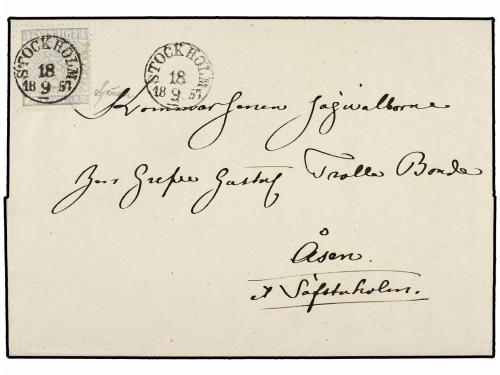 SVERIGE
STOCKHOLM
18
18 9 57
STOCKHOLM
18
18 9 57
Kammarherren
Herr Grefve Gustaf Trolle Bonde
Åsen.
Säfstaholm.